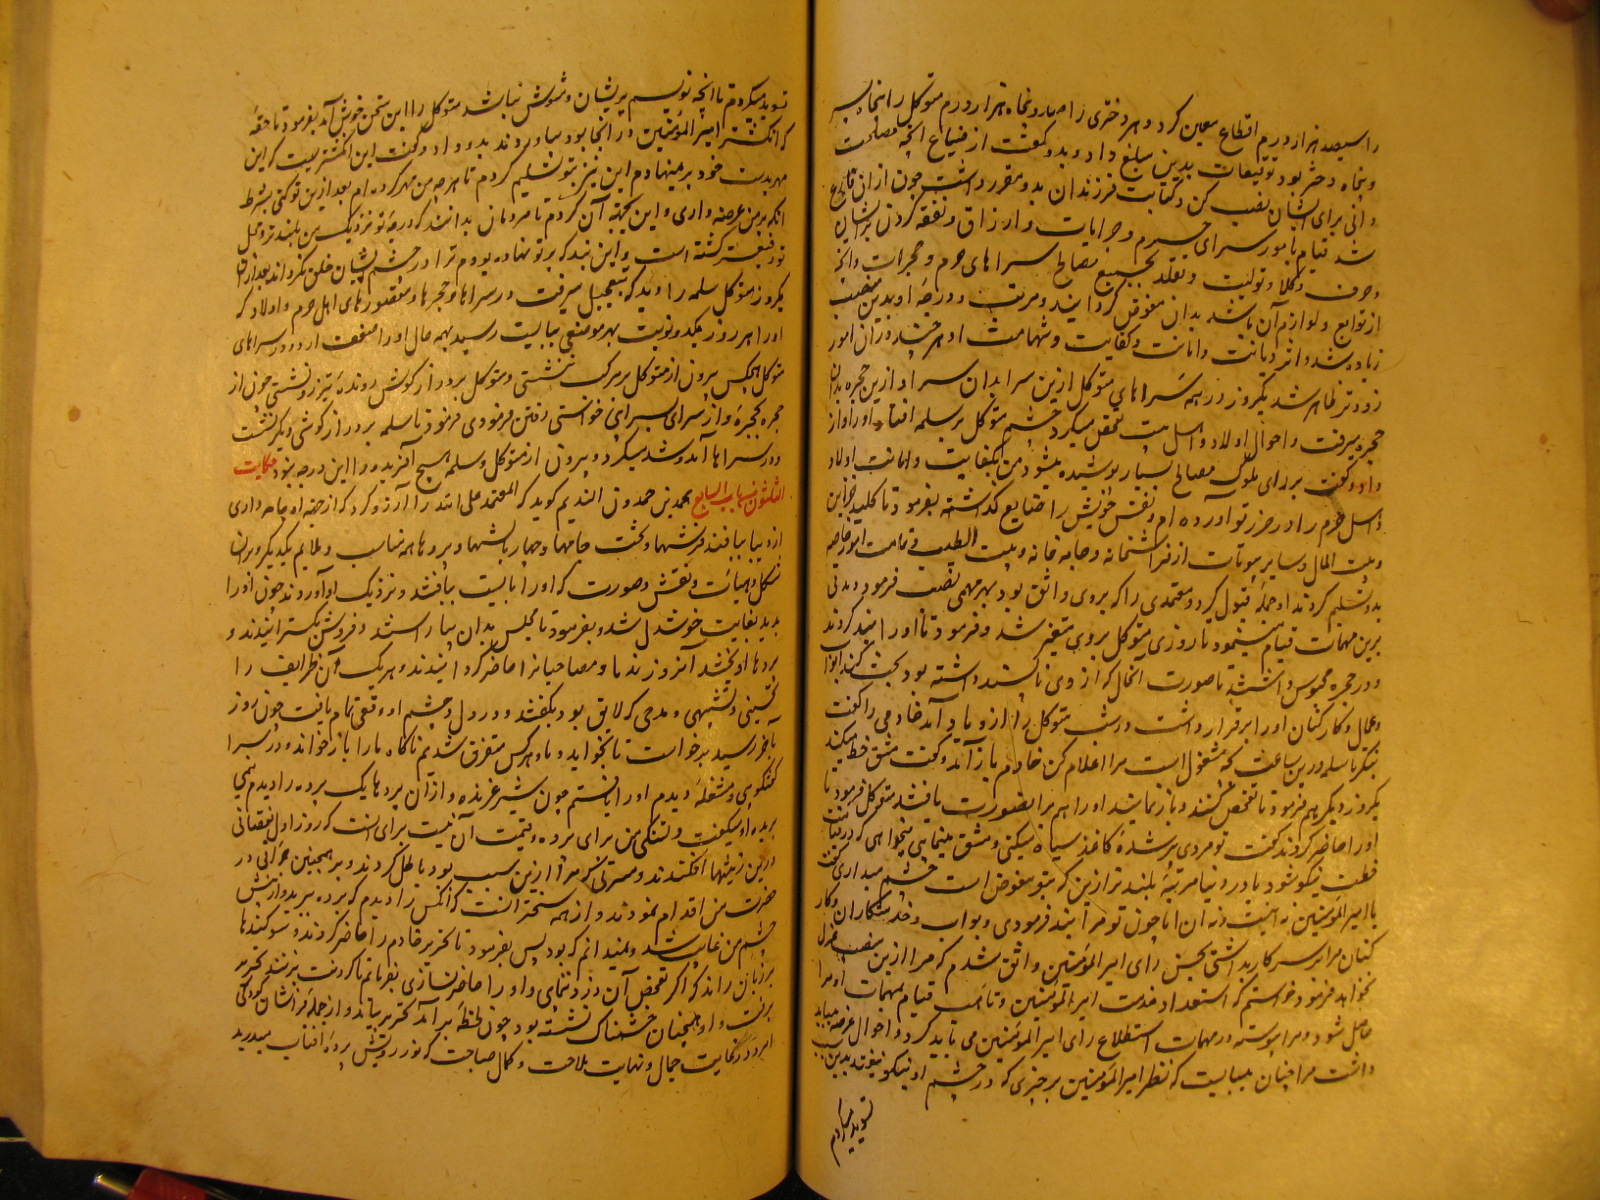 را سیصد هزار درم اقطاع معین کرد و هر دختری را صد و پنجاه هزار درم متوکل را پنجاه پسر
و پنجاه دختر بود توقیعات بدین مبلغ داد و بدو گفت از ضیاع آنچه مصلحت
دانی برای ایشان نصب کن و کتابت فرزندان بدو مقرر داشت چون ازان فارغ
شد قیام بامور سرای حرم و جرایات و ارزاق و نفقه کردن بر ایشان
و صرف وکلا و تولیت و تقلد بجمیع مصالح سراهای حرم و حجرات و آنچه
از توابع و لوازم آن باشد بدان مفوض گردانیدند و مرتبت و درجه او بدین منصب
زیاده شد و اثر دیانت و امانت و کفایت و شهامت او هرچند دران امور
زودتر ظاهر شد یکروز در همه سراهای متوکل ازین سرا بدان سرا و ازین حجره بدان
حجره میرفت و احوال اولاد و اهل بیت تفحص میکرد چشم متوکل بر سلمه افتاد او را آواز
داد و گفت برای ملوک مصالح بسیار پوشیده میشود من بکفایت و امانت اولاد
و اهل حرم را در حرز تو آورده ام و نفس خویش را ضایع گذاشته بفرمود تا کلید خزاین
و بیت المال و سایر بیوتات از فراشخانه و جامه خانه و بیت الطیب و تمامت امور خاصه
بدو تسلیم کردند او جمله قبول کرد و معتمدی را که بر وی واثق بود بهر مهمی نصب فرمود و مدتی
برین مهمات قیام مینمود تا روزی متوکل بر وی متغیر شد و فرمود تا او را بند کردند
و در حجره محبوس داشتند تا صورت آنحال که از وی ناپسند داشته بود بحث کنند اما
و عمال و کارکنان او را برقرار داشت در شب متوکل را ازو یاد آمد خادمی را گفت
بنگر تا سلمه درین ساعت بچه مشغول است مرا اعلام کن خادم باز آمد و گفت مشق خط میکند
یکروز دیگر هم فرمود تا تفحص کنند و باز نمایند او را هم برانصورت یافتند متوکل فرمود تا
او را حاضر کردند گفت تو مردی پیر شده کاغذ سیاه میکنی و مشق مینمایی میخواهی که در کتابت
خطت نیکو شود یا در دنیا مرتبه بلندتر ازین که بتو مفوض است چشم میداری گفت
یا امیرالمؤمنین نه اینست و نه آن اما چون تو مرا بند فرمودی و بواب و خدمتکاران و کار
کنان مرا بر سر کار بداشتی بحسن رای امیرالمؤمنین واثق شدم که مرا ازین منصب عزل
نخواهد فرمود خواستم که استعداد خدمت امیرالمؤمنین و تأهب قیام بمهمات او مرا
حاصل شود و مرا پیوسته در مهمات استطلاع رای امیرالمؤمنین می باید کرد و احوال عرضه میباید
داشت مرا چنان میبایست که نظر امیرالمؤمنین بر چیزی که در چشم او نیکو نیفتد بدین سبب
تسوید میکردم
تسوید میکردم تا آنچه نویسم پریشان و مشوش نباشد متوکل را این سخن خوش آمد بفرمود تا حقه
که انگشتر امیرالمؤمنین در آنجا بود بیاوردند بدو داد و گفت این انگشتریست که این
مهر بدست خود بر مینهادم این نیز بتو تسلیم کردم تا هرچه من مهر کرده ام بعد ازین تو کنی بشرط
آنکه بر من عرضه داری و این بجهته آن کردم تا مردمان بدانند که درجه تو نزدیک من بلندتر و محل
تو رفیعتر گشته است و این بند که بر تو نهاده بودم ترا در چشم ایشان خلق نگرداند بعد ازان
یکروز متوکل سلمه را دید که بتعجیل میرفت در سراها و حجرها و مقصورهای اهل حرم و اولاد که
او را هر روز یکدو نوبت بهر موضعی ببایست رسید بهمه حال او را ضعف آرد و در سراهای
متوکل هیچکس بیرون از متوکل بر مرکب ننشستی و متوکل بر دراز گوش رونده تیزرو نشستی چون از
حجره بحجره و از سرای بسرائی خواستی رفتن فرمودی فرمود تا سلمه بر دراز گوشی دیگر نشست
و در سراها آمد و شد میکرد و بیرون از متوکل و سلمه هیچ آفریده را این درجه نبود حکایت
الثلثون من باب السابع محمد بن حمدون الندیم گوید که المعتمد علی الله را آرزو کرد که از جهة او جامه واری
از دیبا ببافند فرشها و تخت جامها و چهار بالشها و پردها همه مناسب و ملایم یکدیگر و بران
شکل و هیئات و نقش و صورت که او را بایست ببافتند و نزدیک او آوردند چون آنرا
بدید بغایت خوشدل شد و بفرمود تا مجلس بدان بیاراستند و فروش بگسترانیدند و
پردها آویختند آنروز ندما و مصاحبانرا حاضر گردانیدند و هر یک آن ظرایف را
تحسینی و تشبیهی و مدحی که لایق بود بگفتند و در دل و چشم او وقعی تمام یافت چون روز
بآخر رسید برخاست تا بخوابد و ما هر کس متفرق شدیم ناگاه ما را باز خواند و در سرا
گفتگوی و مشغله دیدم او را یافتم چون شیر غرنده و از آن پردها یک پرده را دیدم نیمی
بریده او میگفت دلتنگی من برای پرده و قیمت آن نیست برای آنست که روز اول نقصانی
درین زینتها افکندند و مسرتی که مرا ازین سبب بود باطل کردند و بر همچنین جرأتی در
حضرت من اقدام نمودند و از همه سختر آنست که آنکس را دیدم که پرده ببرید و از پیش
چشم من غایب شد و نمیدانم که بود پس بفرمود تا نحریر خادم را حاضر کردند و سوگندها
بر زبان راند که اگر تفحص آن دزد ننمای و او را حاضر نسازی بفرمایم تا گردنت بزنند نحریر
برفت و او همچنان خشمناک نشسته بود چون لحظه برآمد نحریر بیامد و از جمله فراشان کودکی
امرد در غایت جمال و نهایت ملاحت و کمال صباحت که نور رویش پرده آفتاب میدرید